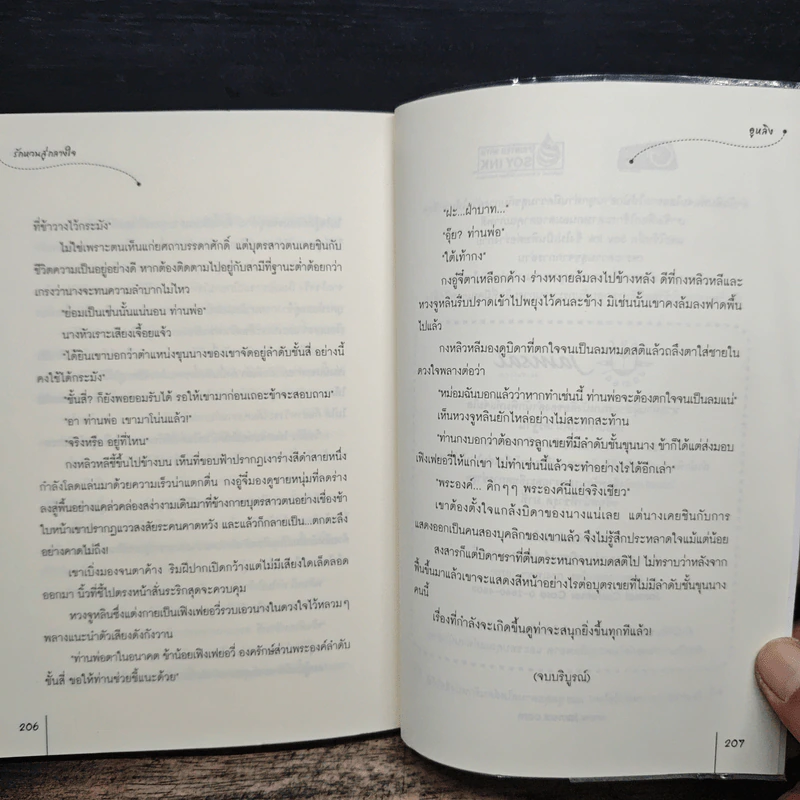 รักหวนสู่กลางใจ
ที่ข้าวางไว้กระมัง"
ไม่ใช่เพราะตนเห็นแก่ยศถาบรรดาศักดิ์ แต่บุตรสาวตนเคยชินกับ
ชีวิตความเป็นอยู่อย่างดี หากต้องติดตามไปอยู่กับสามีที่ฐานะต่ำด้อยกว่า
เกรงว่านางจะทนความลำบากไม่ไหว
"ย่อมเป็นเช่นนั้นแน่นอน ท่านพ่อ"
นางหัวเราะเสียงเจื้อยแจ้ว
"ได้ยินเขาบอกว่าตำแหน่งขุนนางของเขาจัดอยู่ลำดับชั้นสี่ อย่างนี้
คงใช้ได้กระมัง"
"ชั้นสี่? ก็ยังพอยอมรับได้ รอให้เขามาก่อนเถอะข้าจะสอบถาม"
"อา ท่านพ่อ เขามาโน่นแล้ว!"
"จริงหรือ อยู่ที่ไหน"
กงหลิวหลีชี้ขึ้นไปข้างบน เห็นที่ขอบฟ้าปรากฏเงาร่างสีดำสายหนึ่ง
กำลังโลดแล่นมาด้วยความเร็วน่าแตกตื่น กงอู้จี๋มองดูชายหนุ่มที่ลดร่าง
ลงสู่พื้นอย่างคล่วคล่องสง่างามเดินมาที่ข้างกายบุตรสาวตนอย่างเชื่องช้า
ใบหน้าเขาปรากฏแววสงสัยระคนคาดหวัง และแล้วก็กลายเป็น...ตกตะลึง
อย่างคาดไม่ถึง!
เขาเบิ่งมองจนตาค้าง ริมฝีปากเปิดกว้างแต่ไม่มีเสียงใดเล็ดลอด
ออกมา นิ้วที่ชี้ไปตรงหน้าสั่นระริกสุดจะควบคุม
หวงจูหลินซึ่งแต่งกายเป็นเฟิงเฟยอวี่รวบเอวนางในดวงใจไว้หลวมๆ
พลางแนะนำตัวเสียงดังกังวาน
"ท่านพ่อตาในอนาคต ข้าน้อยเฟิงเฟยอวี่ องครักษ์ส่วนพระองค์ลำดับ
ชั้นสี่ ขอให้ท่านช่วยชี้แนะด้วย"
206
อูหลิง
"ฝะ...ฝ่าบาท..."
"อุ๊ย? ท่านพ่อ"
"ใต้เท้ากง"
กงอู้จี๋ตาเหลือกค้าง ร่างหงายล้มลงไปข้างหลัง ดีที่กงหลิวหลีและ
หวงจูหลินรีบปราดเข้าไปพยุงไว้คนละข้าง มิเช่นนั้นเขาคงล้มลงฟาดพื้น
ไปแล้ว
กงหลิวหลีมองดูบิดาที่ตกใจจนเป็นลมหมดสติแล้วถลึงตาใส่ชายใน
ดวงใจพลางต่อว่า
"หม่อมฉันบอกแล้วว่าหากทำเช่นนี้ ท่านพ่อจะต้องตกใจจนเป็นลมแน่"
เห็นหวงจูหลินยักไหล่อย่างไม่สะทกสะท้าน
"ท่านกงบอกว่าต้องการลูกเขยที่มีลำดับชั้นขุนนาง ข้าก็ได้แต่ส่งมอบ
เฟิงเฟยอวี่ให้แก่เขา ไม่ทำเช่นนี้แล้วจะทำอย่างไรได้อีกเล่า"
"พระองค์... คิกๆๆ พระองค์นี่แย่จริงเชียว"
เขาต้องตั้งใจแกล้งบิดาของนางแน่เลย แต่นางเคยชินกับการ
แสดงออกเป็นคนสองบุคลิกของเขาแล้ว จึงไม่รู้สึกประหลาดใจแม้แต่น้อย
สงสารก็แต่บิดาชราที่ตื่นตระหนกจนหมดสติไป ไม่ทราบว่าหลังจาก
ฟื้นขึ้นมาแล้วเขาจะแสดงสีหน้าอย่างไรต่อบุตรเขยที่ไม่มีลำดับชั้นขุนนาง
คนนี้
เรื่องที่กำลังจะเกิดขึ้นดูท่าจะสนุกยิ่งขึ้นทุกทีแล้ว!
(จบบริบูรณ์)
207